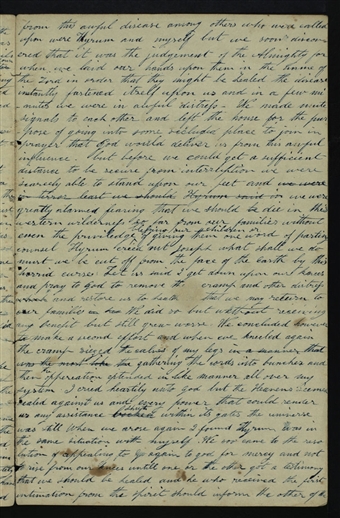 from this awful disease among others who were called
upon were Hyrum and myself but we soon discov
ered that it was the judgement of the Almighty for
when we laid our hands upon them in the name of
the Lord in order that they might be healed the disease
instantly fastened itself upon us and in a few mi
nutes we were in awful distress. We made mute
signals to each other and left the house for the pur
pose of going into some secluded place to join in
prayer that God would deliver us from this awful
influence. but before we could get a sufficient
distance to be secure from interruption we were
scarcely able to stand upon our feet and we were
in
 we were
greatly alarmed fearing that we should die in this
western wilderness so far from our families without
even the privilege of blessing our children or
giving them one word of parting
counsel Hyrum cried out Joseph what shall we do
must we be cut off from the face of the earth by this
horrid curse. Let us said I get down upon our knees
and pray to God to remove the cramp and other distress
and restore us to health that we may return to
our families We did so but without receiving
any benefit but still grew worse. We concluded however
to make a second effort and when we kneeled again
the cramp seized the calves of my legs
 gathering the cords into bunches and
then the operation extended in like manner all over my
system I cried heartily unto God but the Heavens seemed
sealed against us and every power that could render
us any assistance shut within its gates the universe
was still When we arose again I found Hyrum was in
the same situation with myself We soon came to the reso
lution of appealing to again to God for mercy and not
to rise from our knees untill one or the other got a testimony
that we should be healed and he who received the first
intimation from the Spirit should inform the other of it